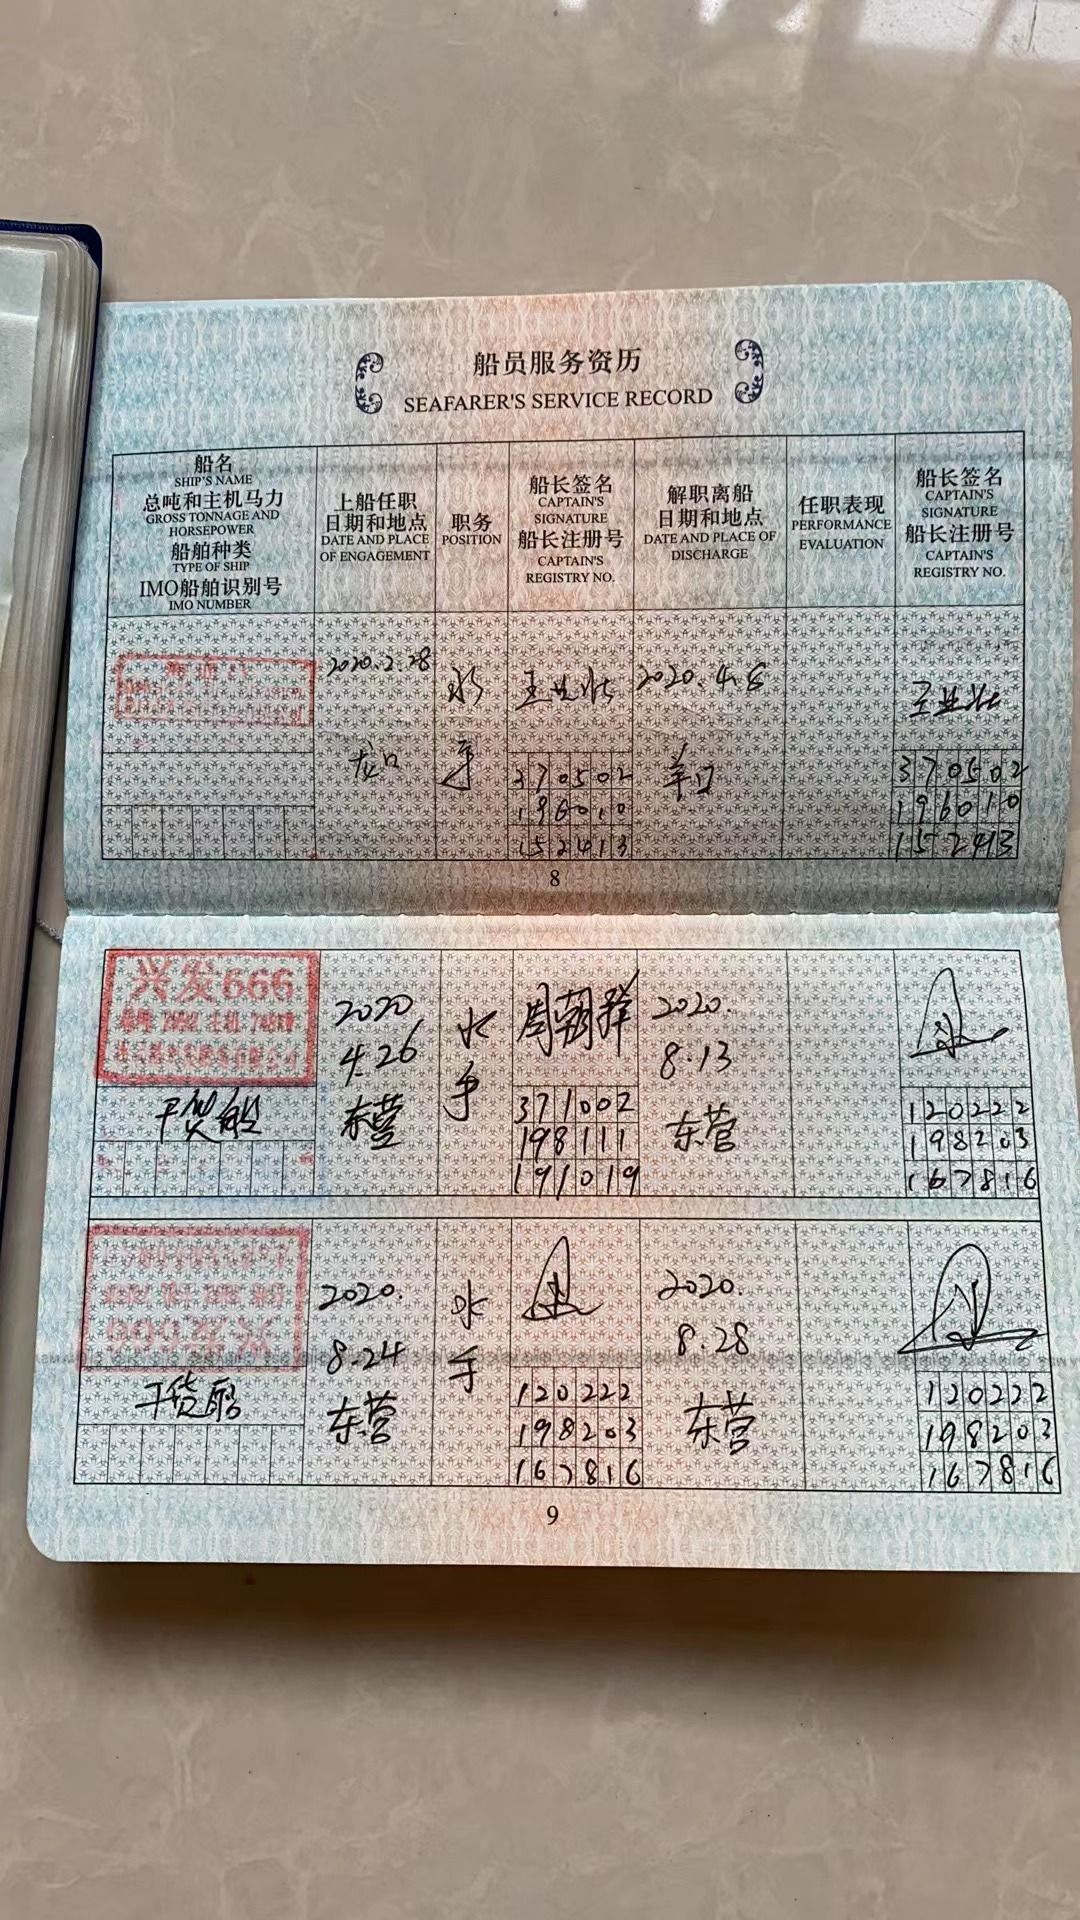 船员服务资历
SEAFARER'S SERVICE RECORD
船名
SHIP'S NAME
总吨和主机马力
GROSS TONNAGE AND
HORSEPOWER
船舶种类
TYPE OF SHIP
IMO船舶识别号
IMO NUMBER
上船任职
日期和地点
DATE AND PLACE
OF ENGAGEMENT
职务
POSITION
船长签名
CAPTAIN'S
SIGNATURE
船长注册号
CAPTAIN'S
REGISTRY NO.
解职离船
日期和地点
DATE AND PLACE OF
DISCHARGE
任职表现
PERFORMANCE
EVALUATION
船长签名
CAPTAIN'S
SIGNATURE
船长注册号
CAPTAIN'S
REGISTRY NO.
2020.2.28
龙口
水
手
370502
196010
152413
2020.4.6
羊口
370502
196010
152413
8
兴发666
干货船
2020
4.26
东营
水
手
周朝群
371002
198111
191019
2020.
8.13
东营
120222
198203
167816
干货船
2020.
8.24
东营
水
手
120222
198203
167816
2020.
8.28
东营
120222
198203
167816
9